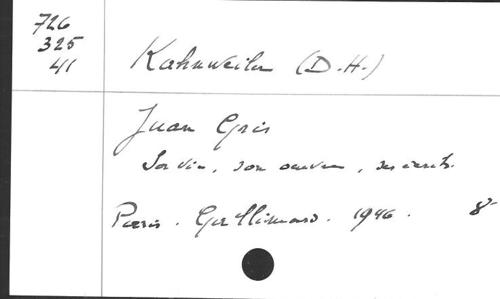 726
325
41
Kahnweiler (D.H.)
Juan Gris
Sa vie, son oeuvre, ses écrits.
Paris. Gallimard. 1946. 8°